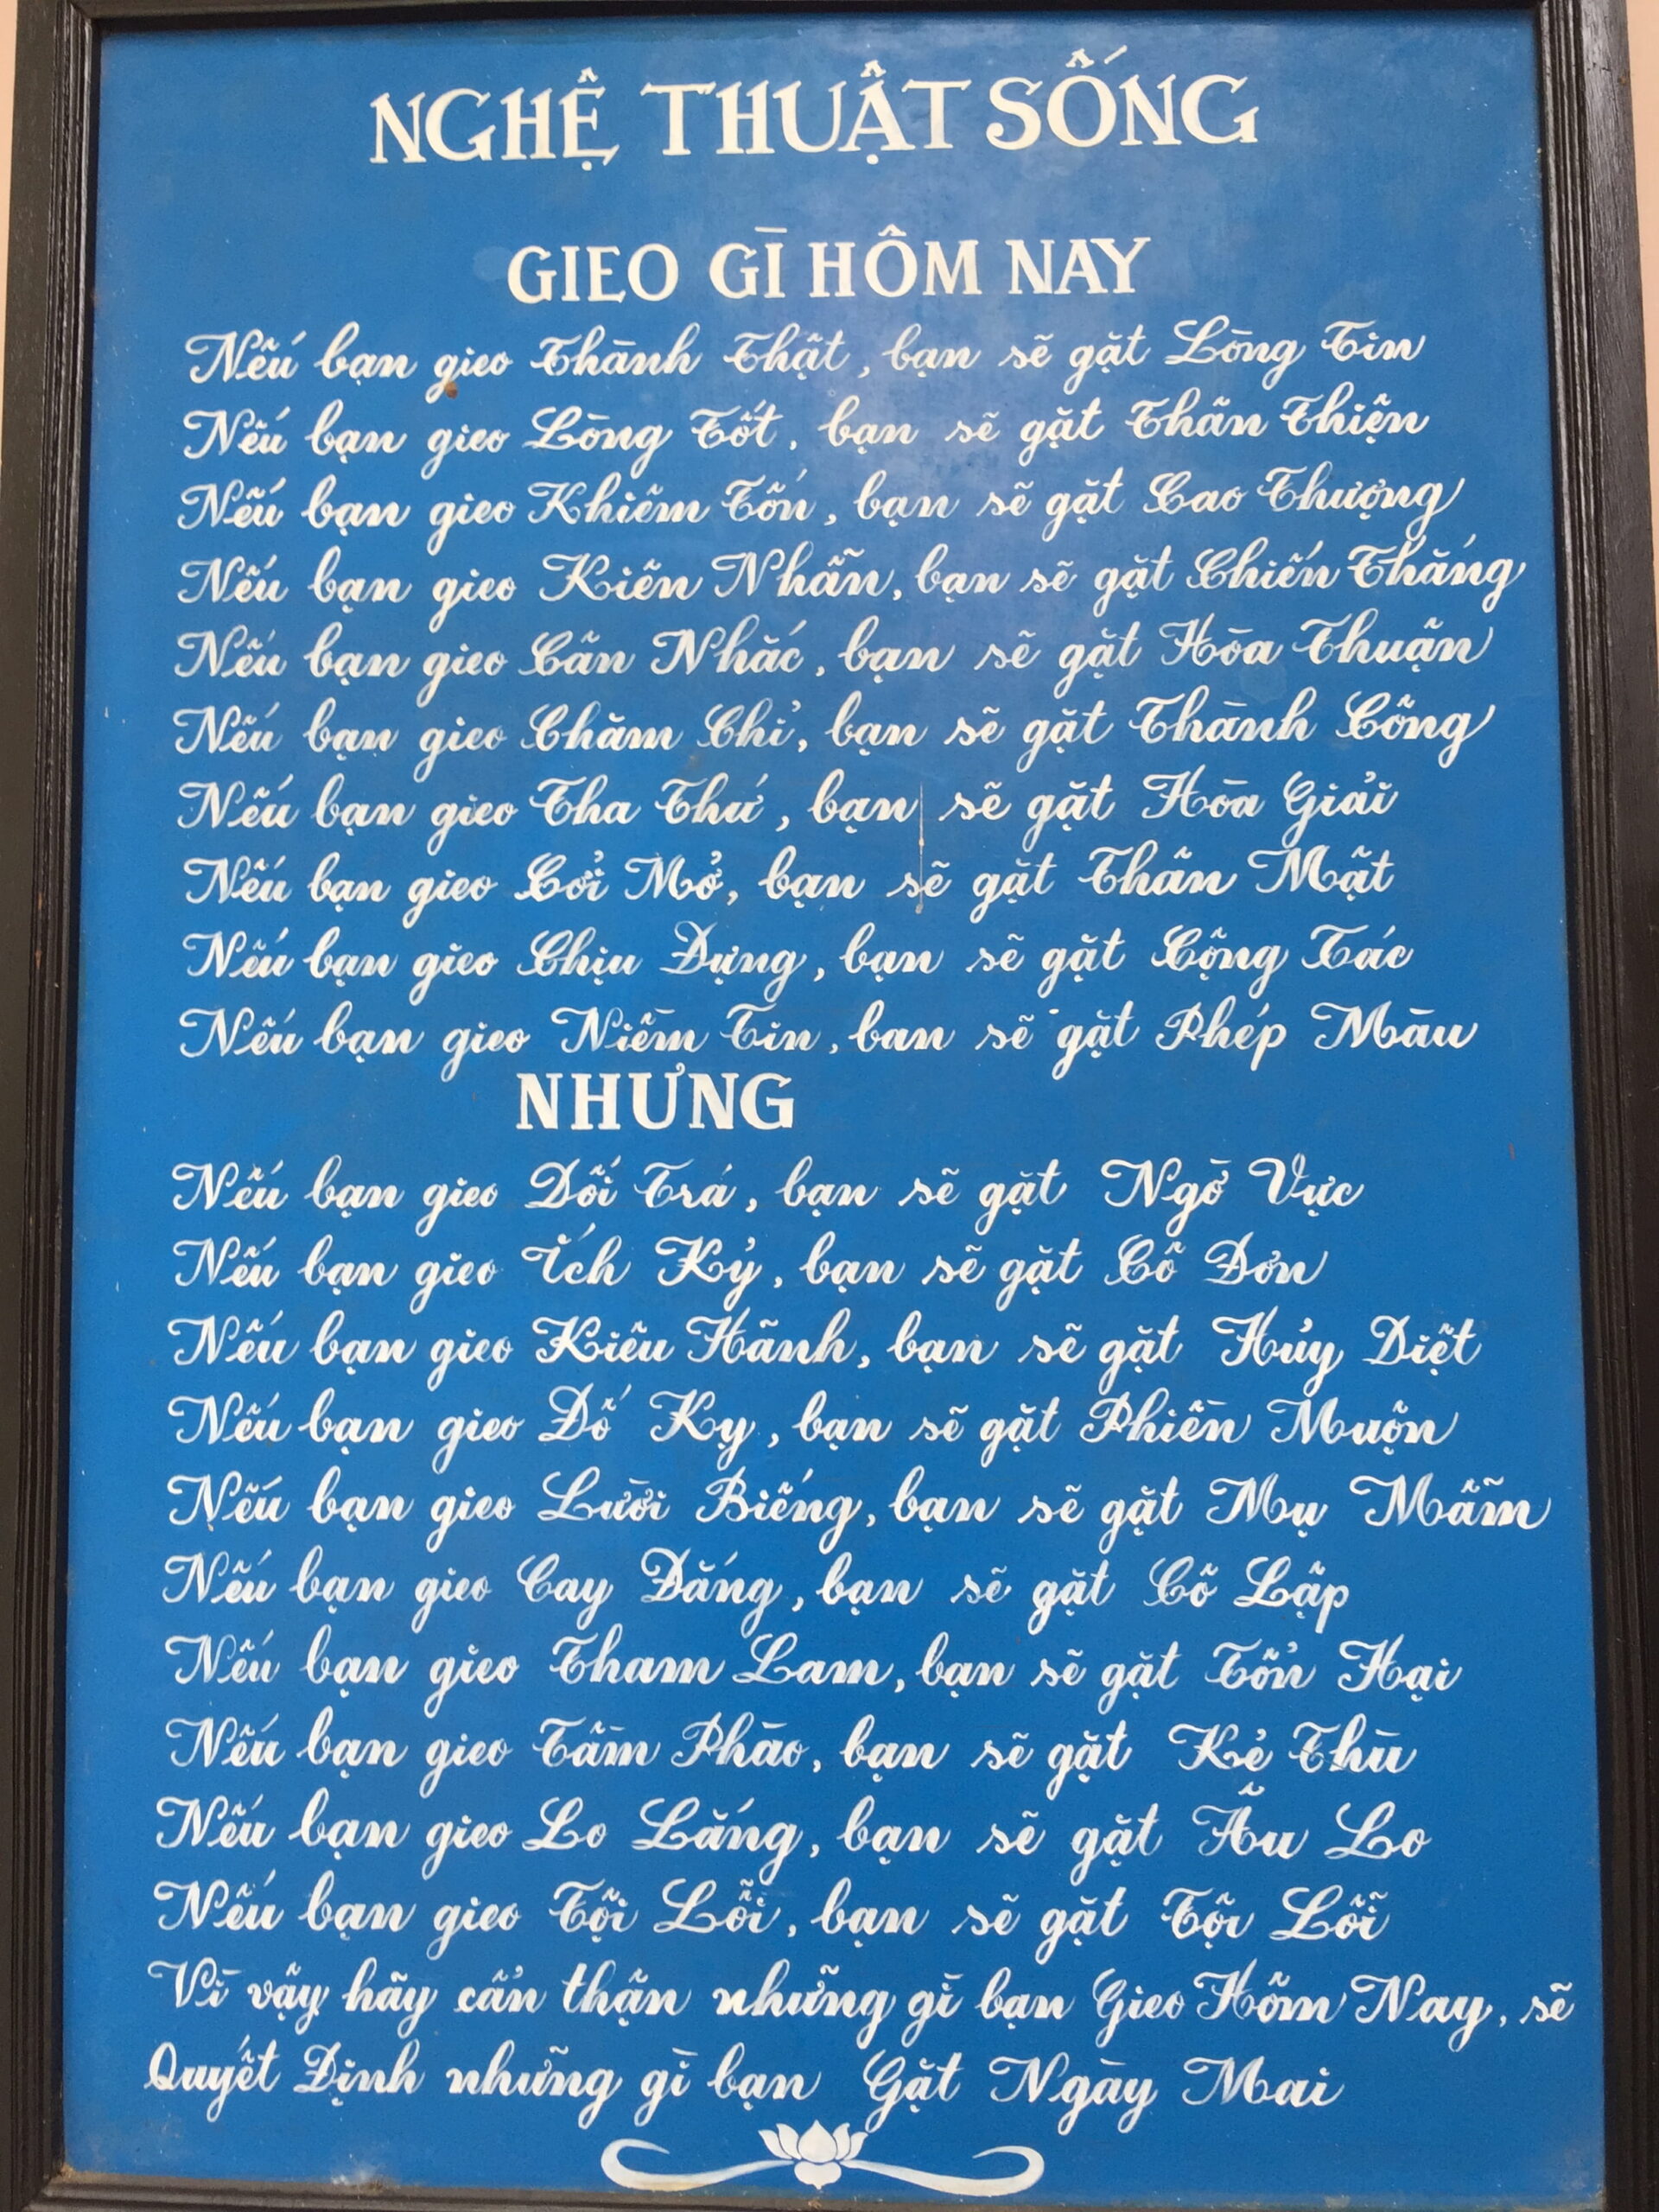 NGHỆ THUẬT SỐNG
GIEO GÌ HÔM NAY
Nếu bạn gieo Thành Thật, bạn sẽ gặt Lòng Tin
Nếu bạn gieo Lòng Tốt, bạn sẽ gặt Thân Thiện
Nếu bạn gieo Khiêm Tốn, bạn sẽ gặt Cao Thượng
Nếu bạn gieo Kiên Nhẫn, bạn sẽ gặt Chiến Thắng
Nếu bạn gieo Cân Nhắc, bạn sẽ gặt Hòa Thuận
Nếu bạn gieo Chăm Chỉ, bạn sẽ gặt Thành Công
Nếu bạn gieo Tha Thứ, bạn sẽ gặt Hòa Giải
Nếu bạn gieo Cởi Mở, bạn sẽ gặt Thân Mật
Nếu bạn gieo Chịu Đựng, bạn sẽ gặt Cộng Tác
Nếu bạn gieo Niềm Tin, ban sẽ gặt Phép Màu
NHƯNG
Nếu bạn gieo Dối Trá, bạn sẽ gặt Ngờ Vực
Nếu bạn gieo Ích Kỷ, bạn sẽ gặt Cô Đơn
Nếu bạn gieo Kiêu Hãnh, bạn sẽ gặt Hủy Diệt
Nếu bạn gieo Đố Kỵ, bạn sẽ gặt Phiền Muộn
Nếu bạn gieo Lười Biếng, bạn sẽ gặt Mụ Mẫm
Nếu bạn gieo Cay Đắng, bạn sẽ gặt Cô Lập
Nếu bạn gieo Tham Lam, bạn sẽ gặt Tổn Hại
Nếu bạn gieo Tầm Phào, bạn sẽ gặt Kẻ Thù
Nếu bạn gieo Lo Lắng, bạn sẽ gặt Âu Lo
Nếu bạn gieo Tội Lỗi, bạn sẽ gặt Tội Lỗi
Vì vậy hãy cẩn thận những gì bạn Gieo Hôm Nay, sẽ
Quyết Định những gì bạn Gặt Ngày Mai